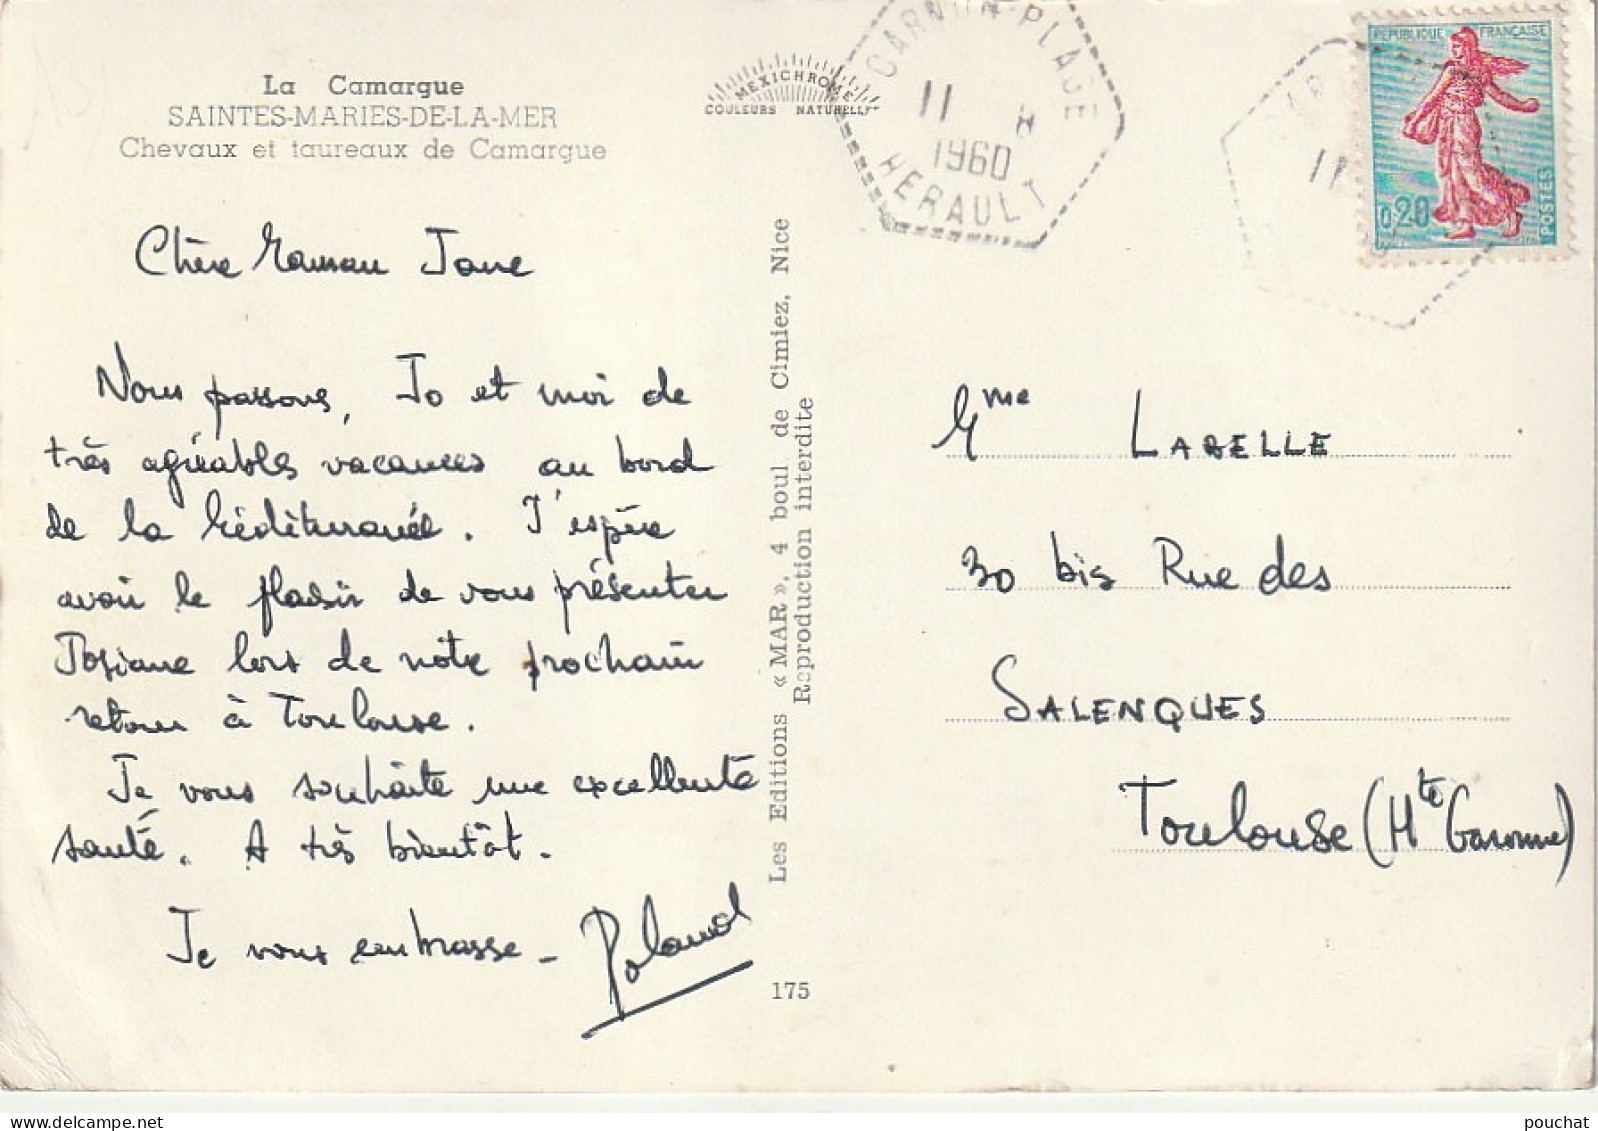 La Camargue
SAINTES-MARIES-DE-LA-MER
Chevaux et taureaux de Camargue
MEXICHROME
COULEURS NATURELLES
CARNON-PLAGE
11
1960
HERAULT
11
REPUBLIQUE FRANÇAISE
0,20
POSTES
Chère Maman Jane
Nous passons, Jo et moi de
très agréables vacances au bord
de la Méditerranée. J'espère
avoir le plaisir de vous présenter
Josiane lors de notre prochain
retour à Toulouse.
Je vous souhaite une excellente
santé. A très bientôt.
Je vous embrasse - Roland
Les Editions « MAR », 4 boul. de Cimiez, Nice
Reproduction interdite
175
Mme LABELLE
30 bis Rue des
SALENQUES
Toulouse (Hte Garonne)
pouchat